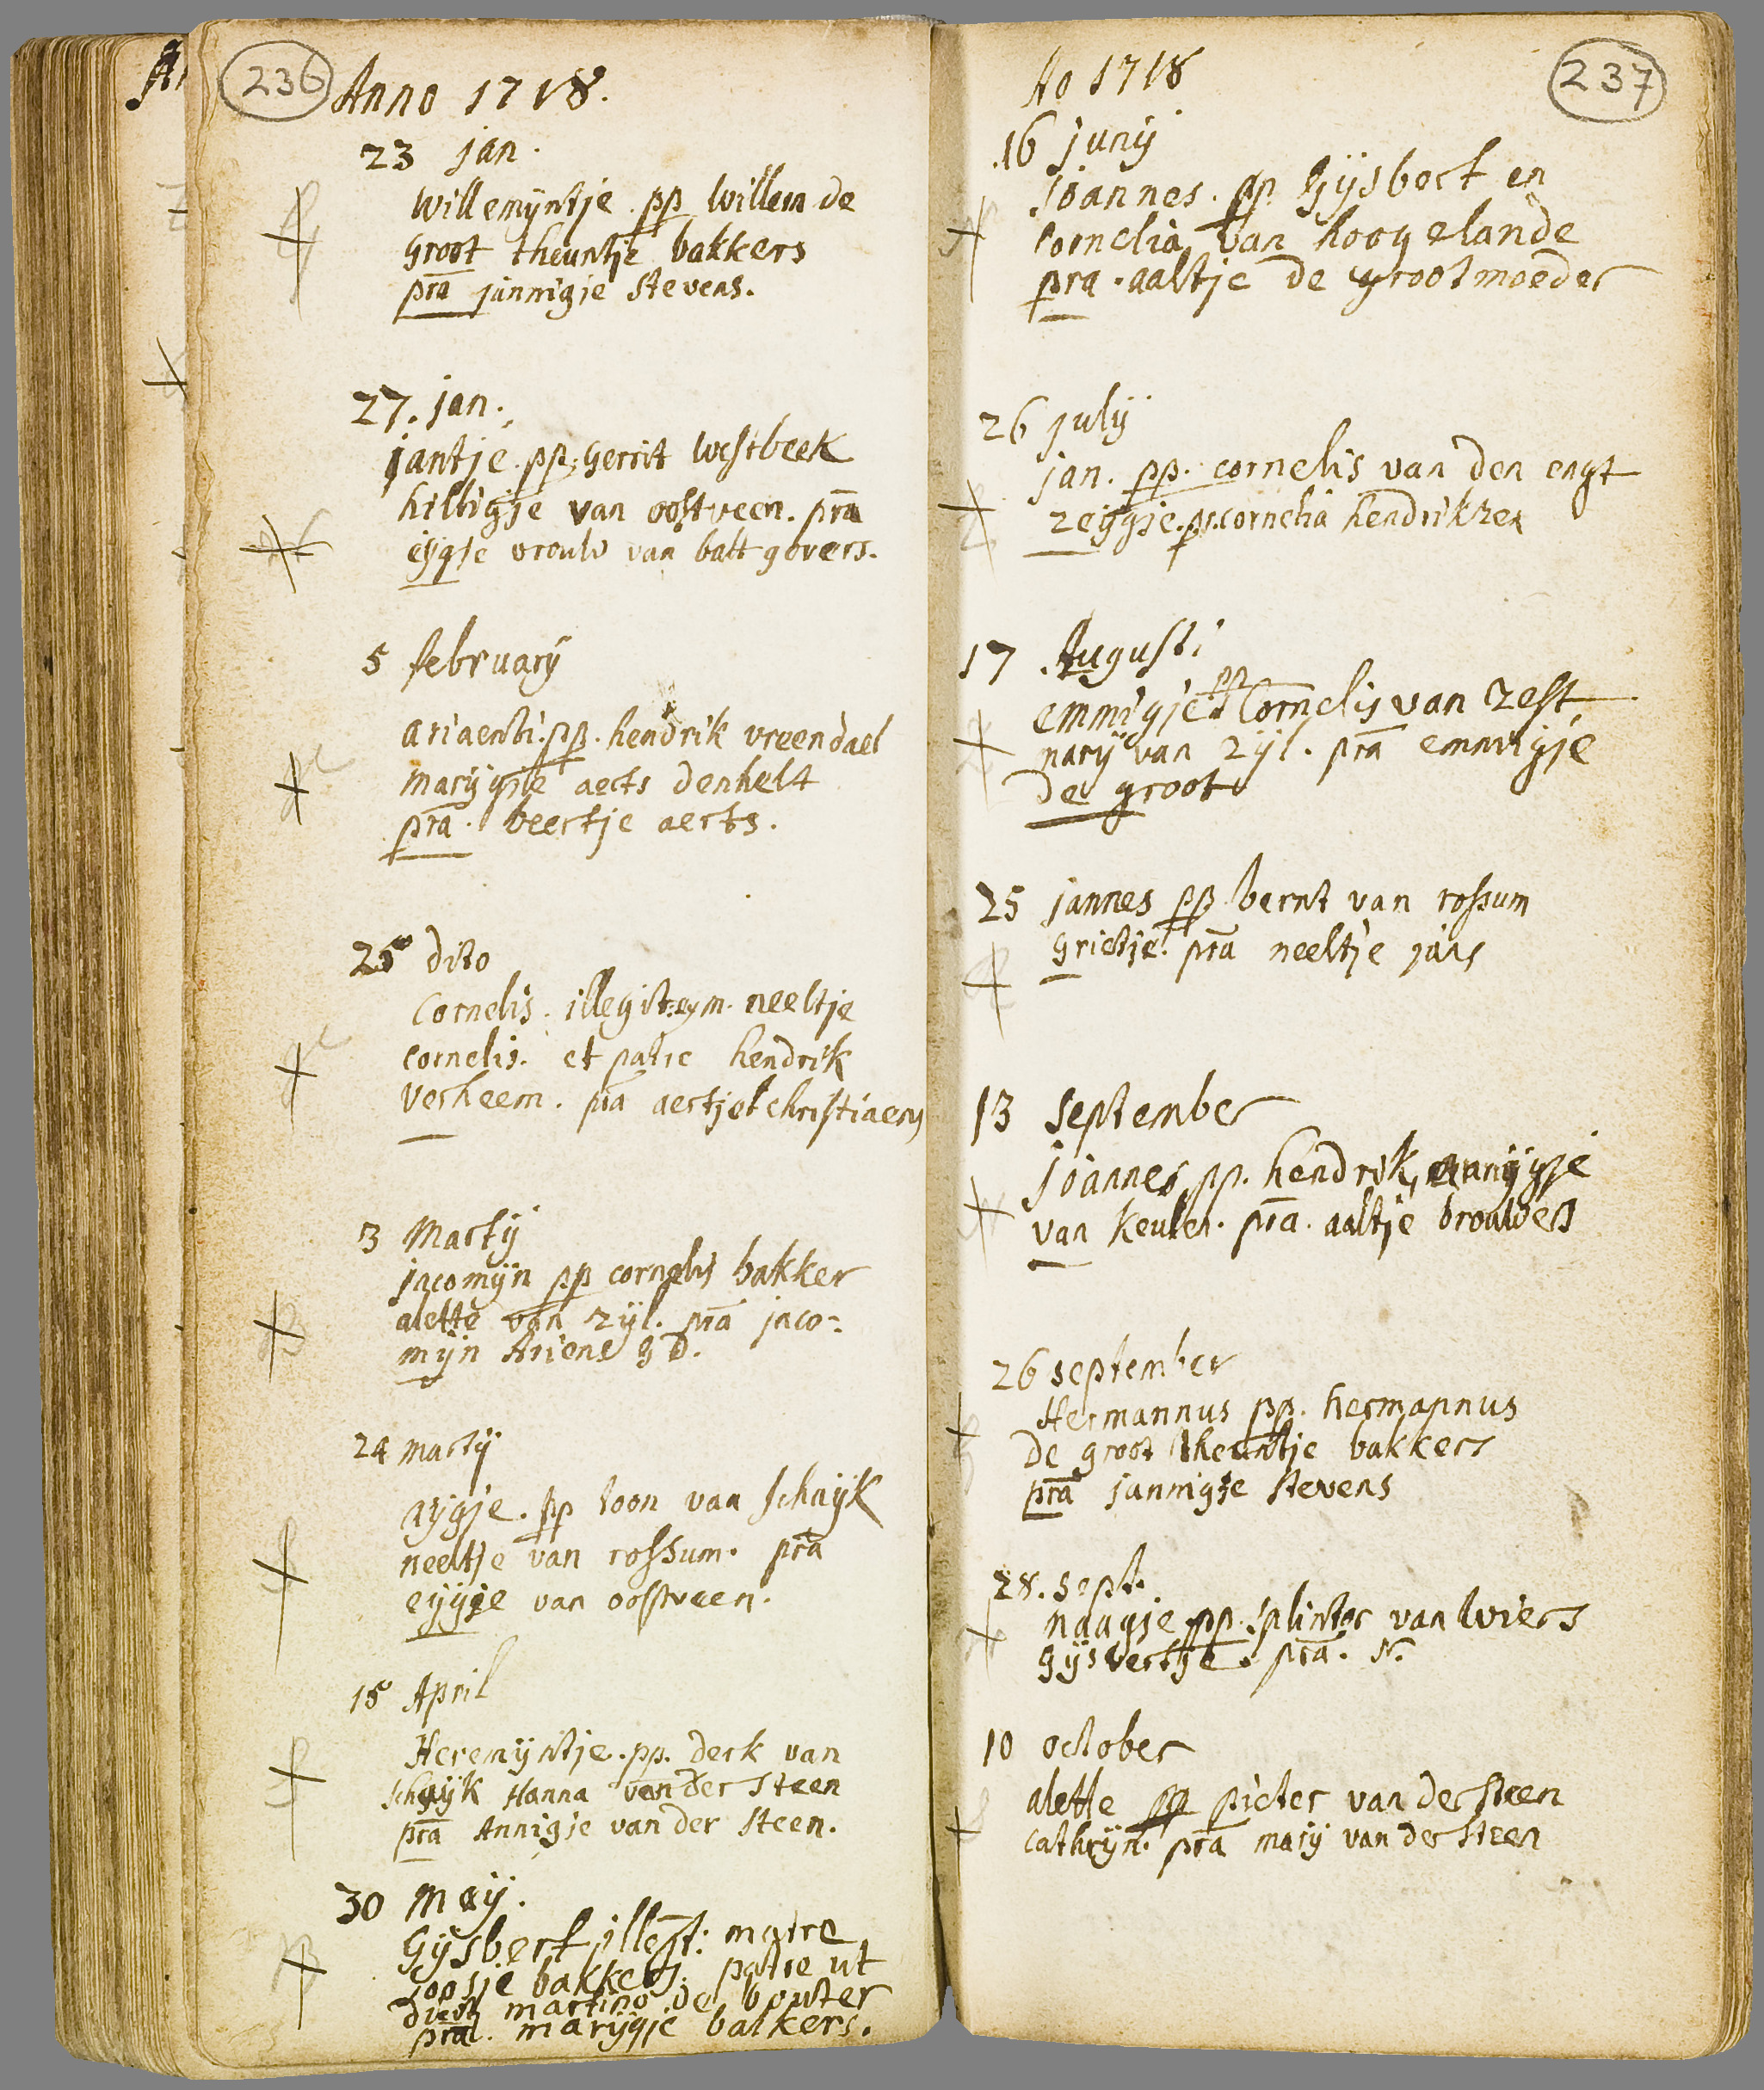 236
Anno 1718.
23 jan.
Willemÿntje. pp Willem de
groot theuntje bakkers
pra jannigje Stevens.
27. jan.
jantje. pp. Gerrit Westbeek
hilligje van oostveen. pra
eÿgje vrouw van balt govers.
5 februarÿ
ariaenti. pp. hendrik vreendael
marÿgje aerts denhelt
pra. beertje aerts.
25 dito
Cornelis. illegit. neeltje
cornelis. et patre hendrik
Verheem. pra aertje christiaens
3 Martÿ
jacomÿn pp cornelis bakker
alette van zÿl. pra jaco=
mÿn Ariens
24 martÿ
aÿgje. pp toon van Schaÿk
neeltje van rossum. pra
eÿgje van oostveen.
15 April
Heremÿntje. pp. derk van
Schaÿk Hanna van der Steen
pra Annigje van der Steen.
30 meÿ.
Gÿsbert illegt: matre
joosje bakkers. patre ut
martino de bouter
pra. marÿgje bakkers.
237
Ao 1718
16 junÿ
Joannes. pp. Gÿsbert en
Cornelia van hoogelande
pra. aaltje de grootmoeder
26 julÿ
jan. pp. cornelis van den engt
zeÿgje. pr. cornelia hendrikzen
17 Augusti
emmigje pp Cornelis van Zest
marÿ van zÿl. pra emmigje
de groot
25 jannes pp bernt van rossum
grietje. pra neeltje jans
13 September
Joannes pp. hendrik, marÿgje
van Keulen. pra. aaltje brouwers
26 september
Hermannus pp. hermannus
de groot theuntje bakkers
pra jannigje Stevens
28. sept.
naagje pp. splinter van Wiers
gÿsbertje. pra. N.
10 october
alette pp pieter van der Steen
cathrÿn. pra marÿ van der Steen